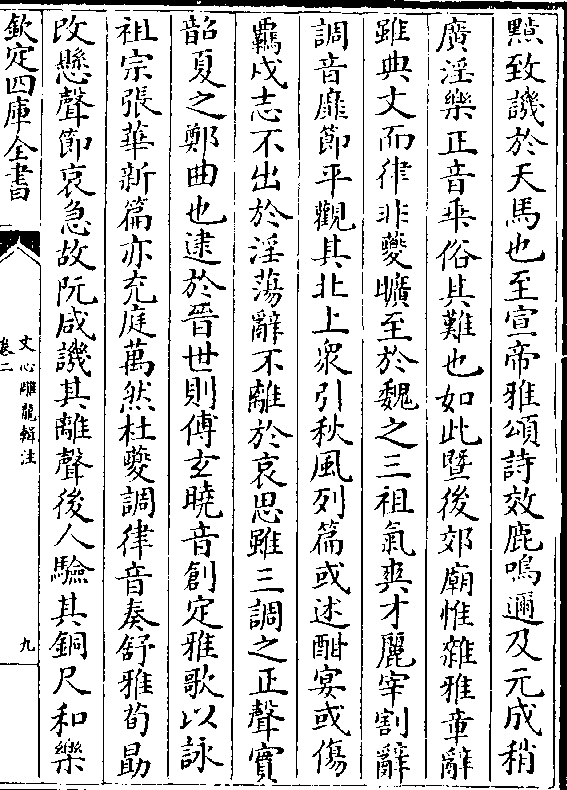 黯致譏於天馬也至宣帝雅頌詩效鹿鳴邇及元成稍
廣淫樂正音乖俗其難也如此暨後郊廟惟雜雅章辭
雖典文而律非夔曠至於魏之三祖氣爽才麗宰割辭
調音靡節平觀其北上衆引秋風列篇或述酣宴或傷
羈戍志不出於淫蕩辭不離於哀思雖三調之正聲實
韶夏之鄭曲也逮於晉世則傅玄曉音創定雅歌以詠
祖宗張華新篇亦充庭萬然杜夔調律音奏舒雅荀勗
改懸聲節哀急故阮咸譏其離聲後人驗其銅尺和樂
欽定四庫全書
文心雕龍輯注
卷二
九